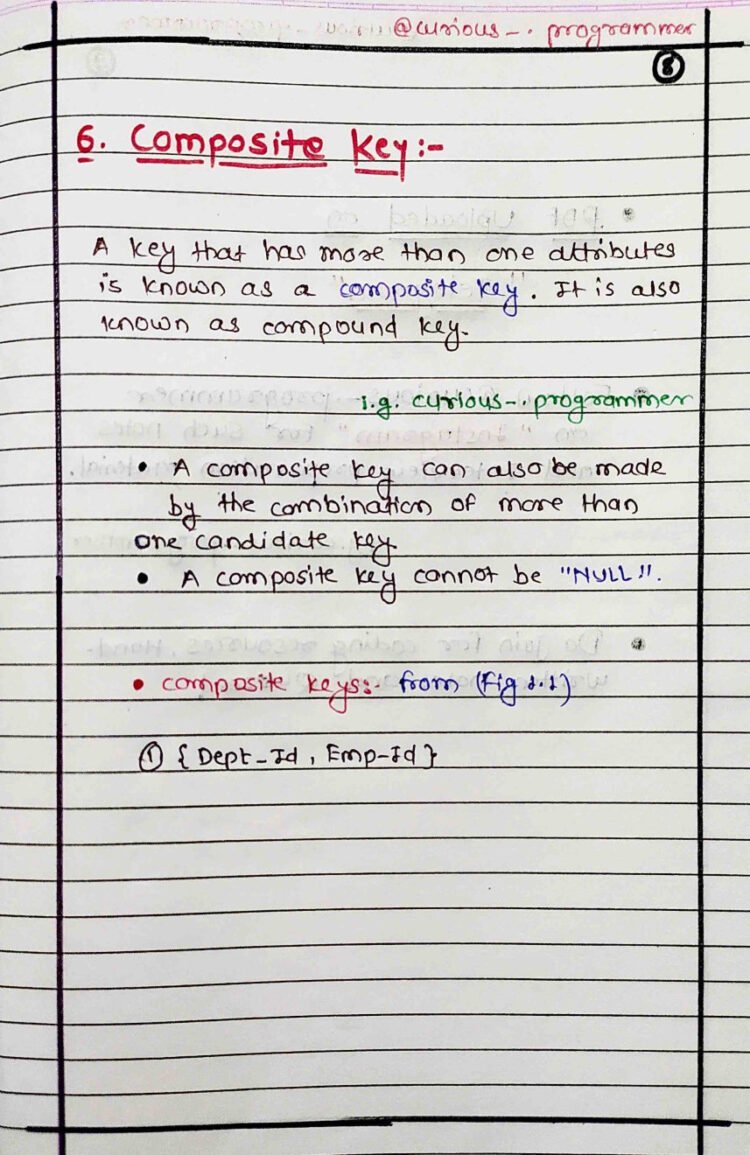 @curious_.programmer
8
6. Composite Key:-
A key that has more than one attributes
is known as a composite key. It is also
known as compound key.
i.g. curious_.programmer
• A composite key can also be made
by the combination of more than
one candidate key.
• A composite key cannot be "NULL".
• composite keys:- from (Fig 1.1)
① { Dept_Id , Emp_Id }